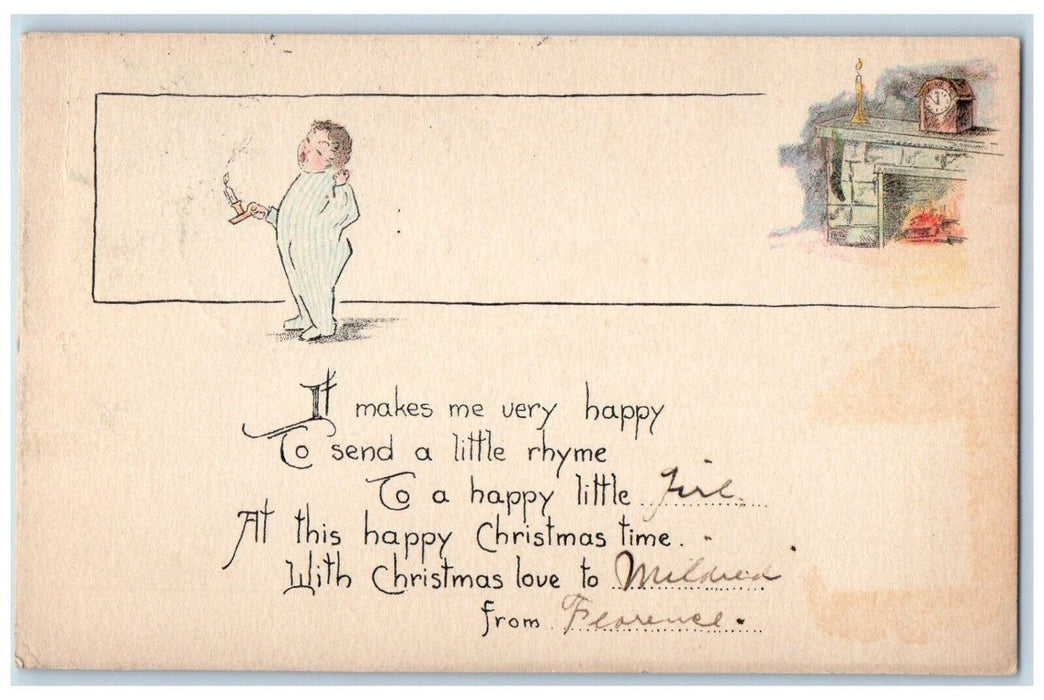 It makes me very happy
To send a little rhyme
To a happy little Girl
At this happy Christmas time.
With Christmas love to Mildred
from Florence.